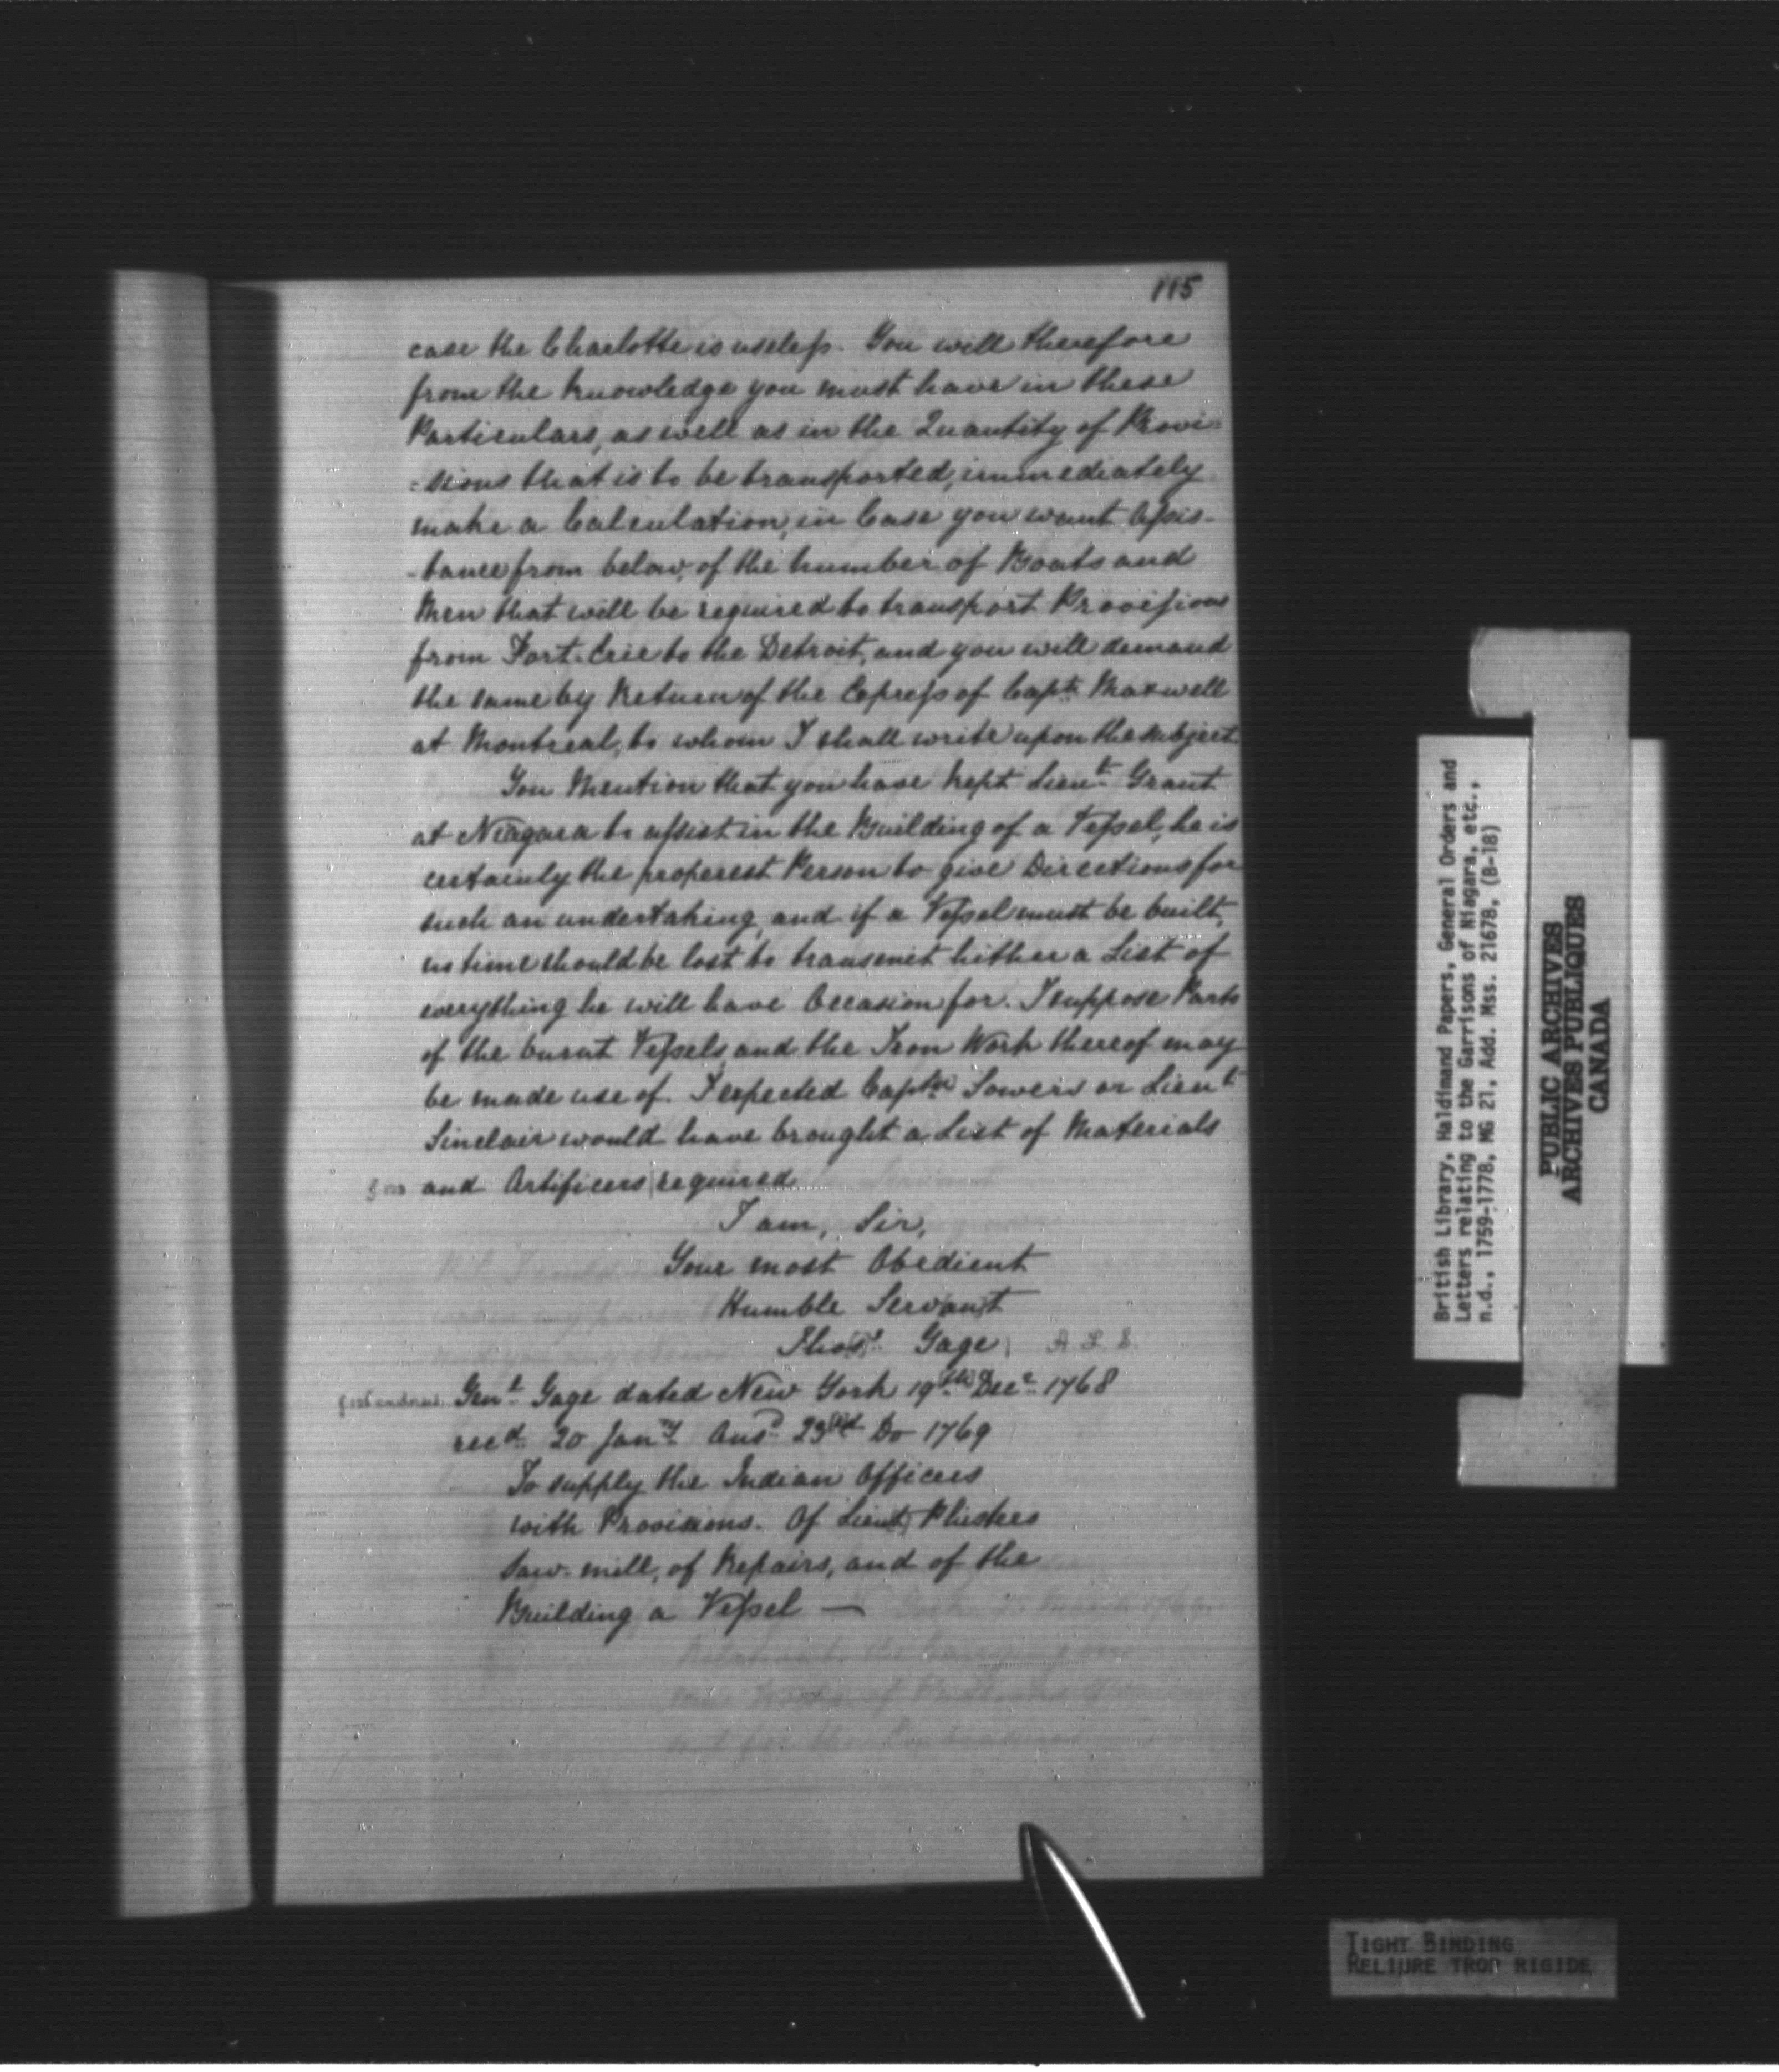 115
case the Charlotte is useless. You will therefore
from the knowledge you must have in these
Particulars, as well as in the Quantity of Provi=
=sions that is to be transported, immediately
make a Calculation, in Case you want Assis-
-tance from below, of the number of Boats and
Men that will be required to transport Provisions
from Fort Erie to the Detroit, and you will demand
the same by Return of the Express of Capt. Maxwell
at Montreal, to whom I shall write upon the subject
You Mention that you have kept Lieut. Grant
at Niagara to assist in the Building of a Vessel, he is
certainly the properest Person to give Directions for
such an undertaking, and if a Vessel must be built,
no time should be lost to transmit hither a List of
everything he will have Occasion for. I suppose Parts
of the burnt Vessels and the Iron Work thereof may
be made use of. I expected Captn Sowers or Lieut
Sinclair would have brought a List of Materials
and Artificers required
I am, Sir,
Your most Obedient
Humble Servant
Thos. Gage A. L. S.
Genl. Gage dated New York 19th Decr. 1768
recd. 20 Jany. Ansd 23rd Do 1769
To supply the Indian Officers
with Provisions. Of Lieut Pliskes
Saw-mill, of Repairs, and of the
Building a Vessel —
British Library, Haldimand Papers, General Orders and
Letters relating to the Garrisons of Niagara, etc.,
n.d., 1759-1778, MG 21, Add. Mss. 21678, (B-18)
PUBLIC ARCHIVES
ARCHIVES PUBLIQUES
CANADA
TIGHT BINDING
RELIURE TROP RIGIDE